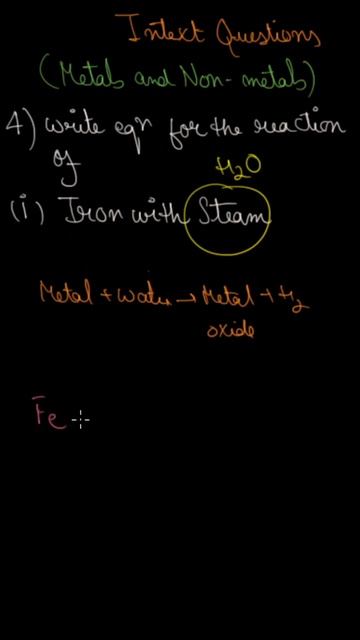 Intext Questions
(Metals and Non-metals)
4) write eqn for the reaction
of
H₂O
(i) Iron with Steam
Metal + Water → Metal + H₂
oxide
Fe +